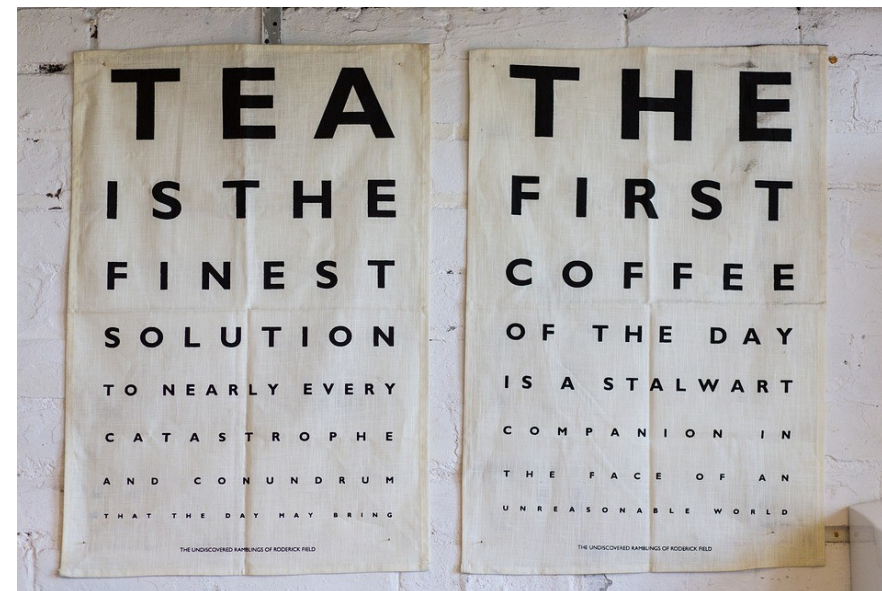 TEA
IS THE
FINEST
SOLUTION
TO NEARLY EVERY
CATASTROPHE
AND CONUNDRUM
THAT THE DAY MAY BRING
THE UNDISCOVERED RAMBLINGS OF RODERICK FIELD
THE
FIRST
COFFEE
OF THE DAY
IS A STALWART
COMPANION IN
THE FACE OF AN
UNREASONABLE WORLD
THE UNDISCOVERED RAMBLINGS OF RODERICK FIELD